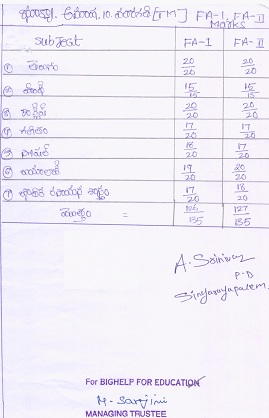 FA-I, FA-II
Marks
Subject FA-I FA-II
① తెలుగు 20/20 20/20
② హిందీ 15/15 15/15
③ ఇంగ్లీష్ 20/20 20/20
④ గణితం 17/20 17/20
18/20 17/20
19/20 20/20
17/20 18/20
మొత్తం = 126/135 127/135
A. Srinivas
P.D
Singarayapalem
For BIGHELP FOR EDUCATION
M. Sarojini
MANAGING TRUSTEE